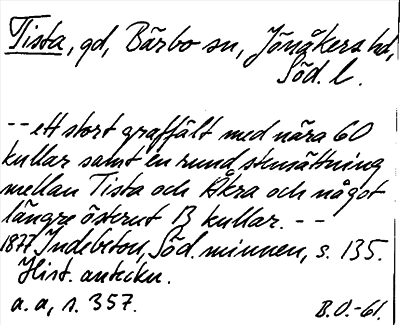 Tista, gd, Bärbo sn, Jönåkers hd,
Söd. l.
-- ett stort graffält med nära 60
kullar samt en rund stensättning
mellan Tista och Åkra och något
längre österut 13 kullar. --
1877 Indebetou, Söd. minnen, s. 135.
Hist. anteckn.
a. a, s. 357.
B.O.-61.